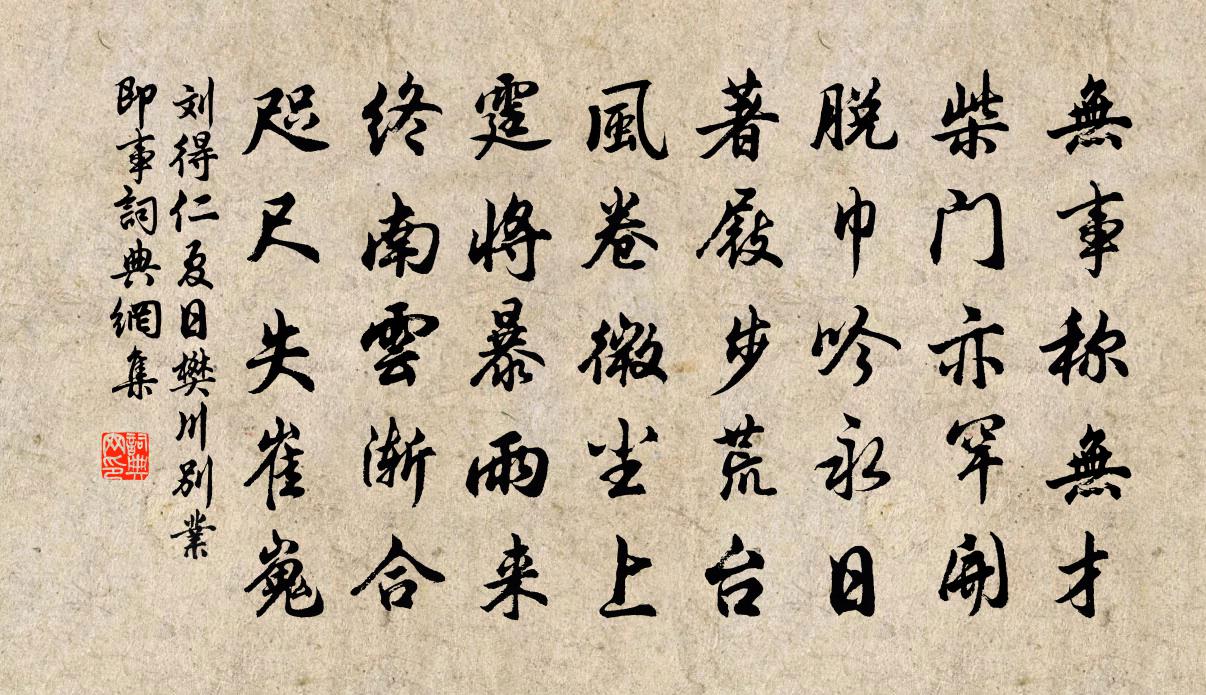 無事称無才
柴门亦罕開
脱巾吟永日
著屐步荒台
風卷微尘上
霆將暴雨来
终南雲渐合
咫尺失崔嵬
刘得仁夏日樊川别業
即事詞典網集
詞典网印